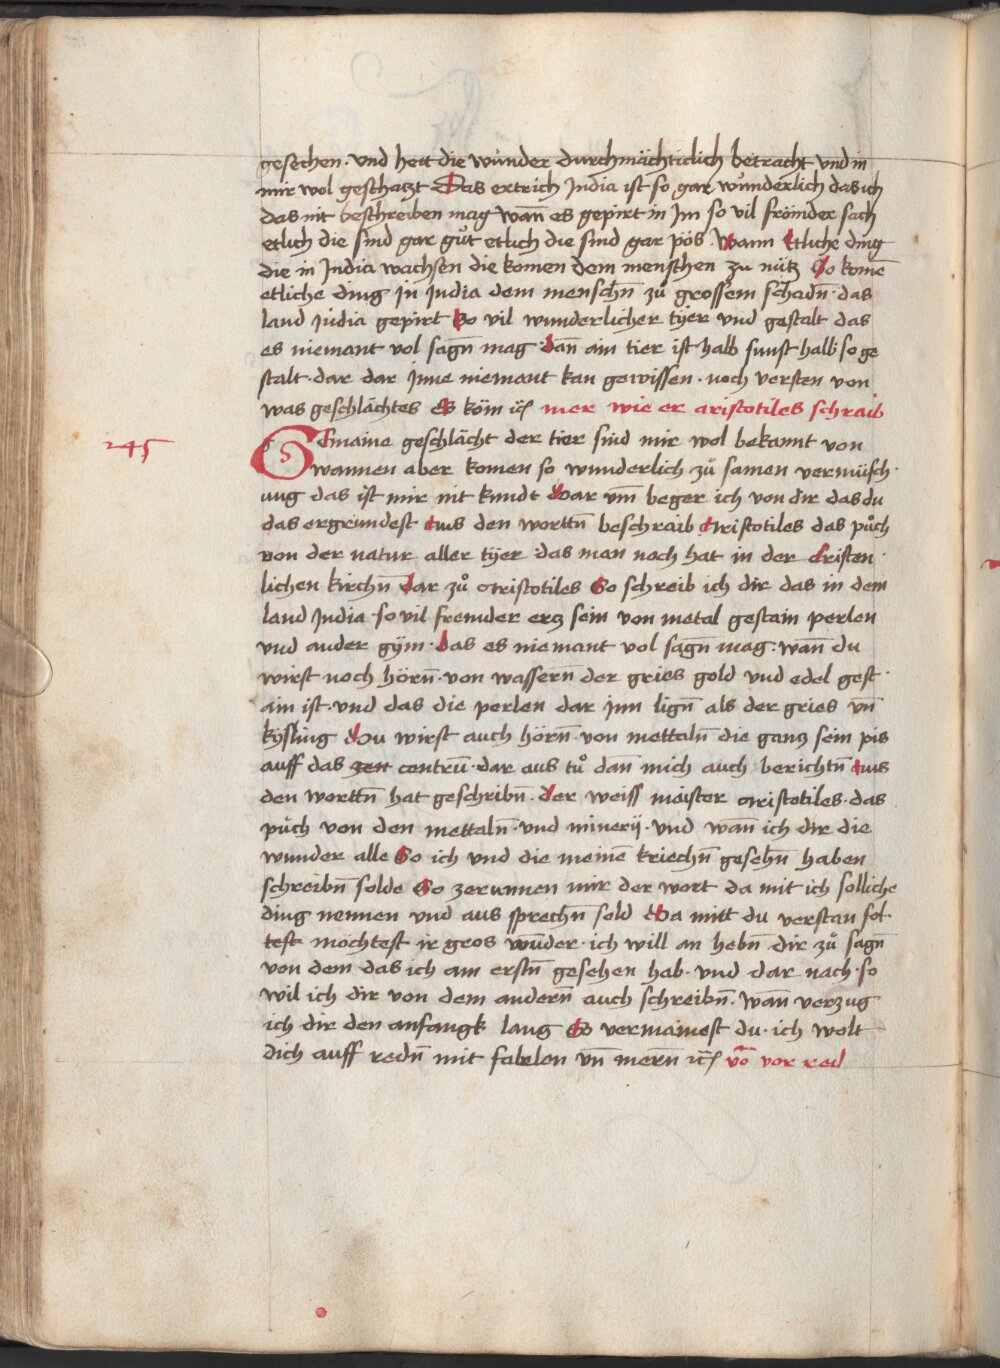 gesechen · vnd hett die wunder durchmächticlich betracht vnd in
mir wol geschatzt Das ertrich India ist so gar wůnderlich das ich
das nit beschreiben mag Wan̄ es gepirt in Im so vil frömder sach
etlich die sind gar gůt etlich die sind gar pös · Wann Etliche ding
die in India wachsen die komen dem menschen zu nütz So komē
etliche ding Jn India dem mensch̄n zů grossem schad̄n · das
land Jndia gepirt So vil wunderlicher tÿer vnd gestalt das
es niemant vol saḡn mag · dan̄ ain tier ist halb sunst halb so ge
stalt · dar dar Jnne niemant kan gewissen · noch versten von
was geschlächtes Es köm ꝛc̄ mer wie er aristotiles schraib
245
GEmaine geschlächt der tier sind mir wol bekannt von
wannen aber komen so wunderlich zů samen vermüsch ·
ung das ist mir nit kundt Dar vm̄ beger ich von dir das du
das ergrundest Aus den wortt̄n beschraib Aristotiles das půch
von der natur aller tÿer das man noch hat in der Cristen ·
lichen kirch̄n Dar zů Aristotiles So schreib ich dir das in dem
land India · so vil fremder ercz sein von metal gestain perlen
vnd ander gÿm · das es niemant vol saḡn mag · wan̄ du
wirst noch hör̄n · von wasser̄n der gries gold vnd edel gest ·
ain ist · vnd das die perlen dar Jnn lign̄ als der gries vn̄
kÿsling Du wirst auch hör̄n · von mettal̄n die gancz sein pis
auff das zen centrū · dar aus tů dan̄ mich auch · bericht̄n Aus
den wortt̄n hat geschrib̄n · der weiss maister Aristotiles · das
půch von den mettal̄n · vnd minerÿ · vnd wan̄ ich dir die
wunder alle So ich vnd die meinē kriech̄n geseh̄n haben
schreib̄n solde So zerunnen mir der wort da mit ich solliche
ding nennen vnd aus sprech̄n sold Da mitt du verstan söl ·
test möchtest ir gros wūder · ich will an heb̄n dir zů saḡn
von dem das ich am erst̄n gesehen hab · vnd dar nach · so
wil ich dir von dem ander̄n auch schreib̄n · wan̄ verzug
ich dir den anfangk lang So vermainest du · ich wolt
dich auff red̄n mit fabelen vn̄ mer̄n ꝛc̄ vō vor red